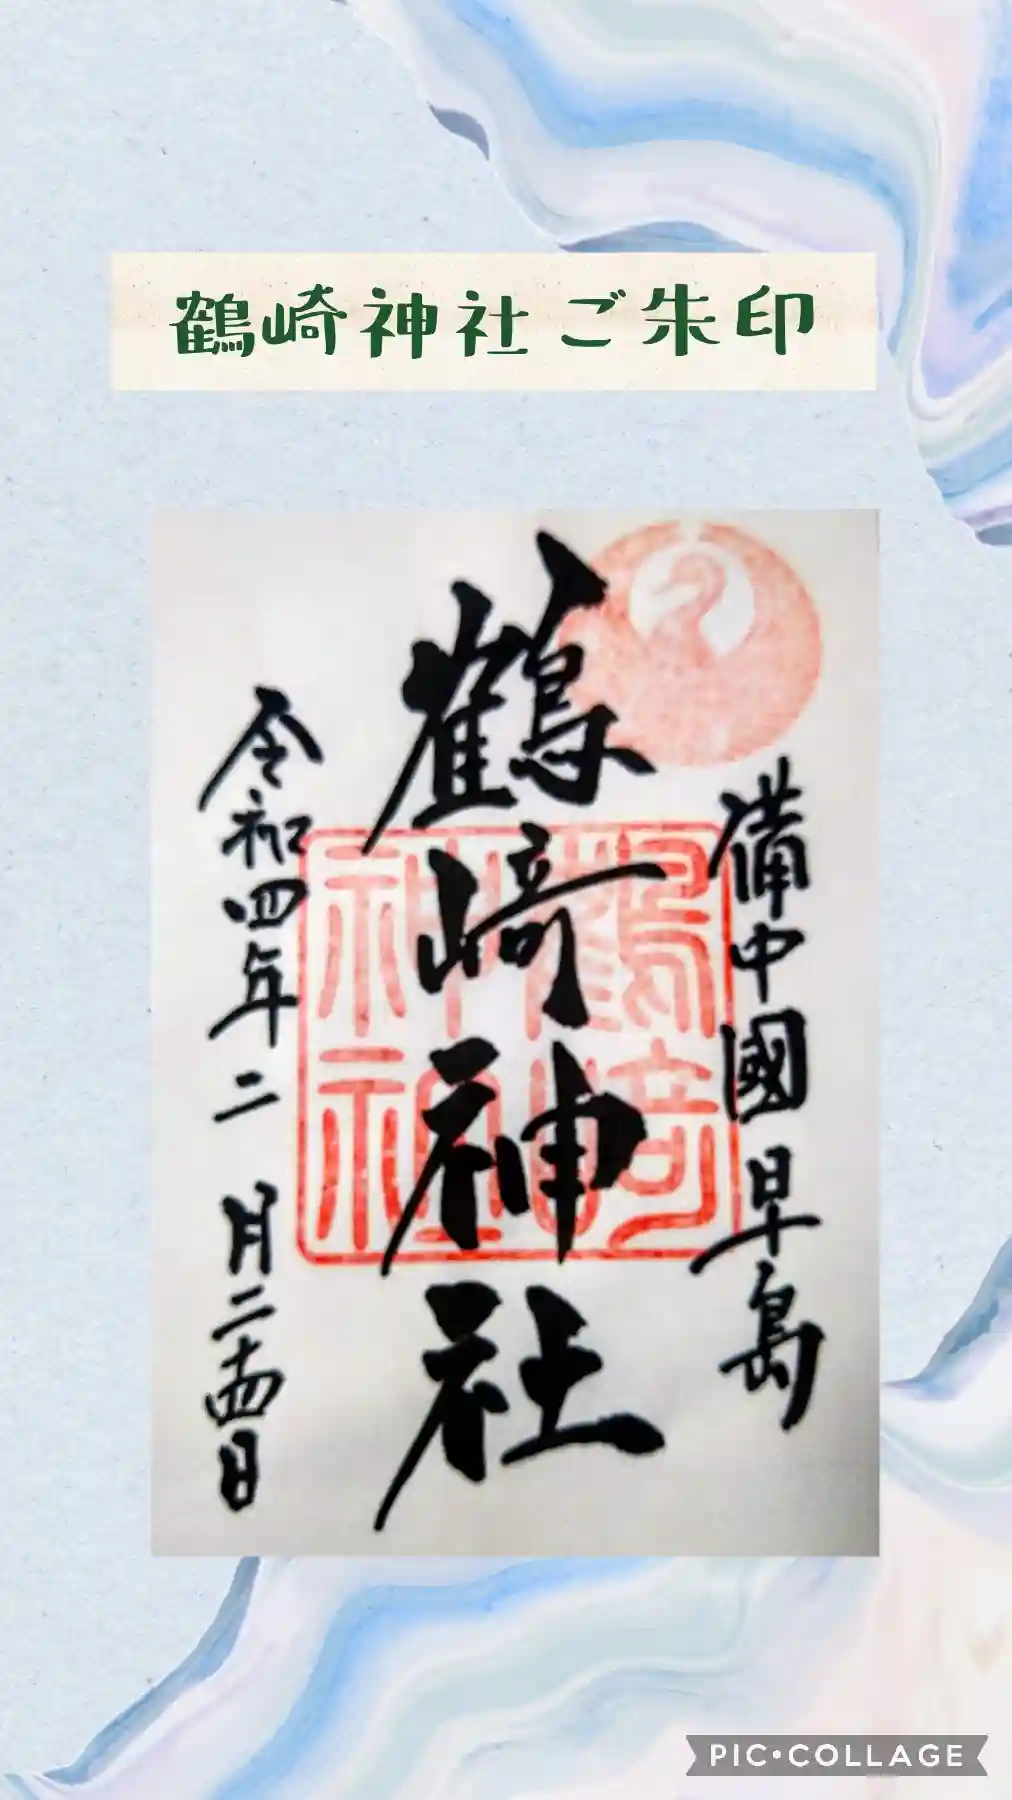 鶴崎神社ご朱印
備中國早島
鶴崎神社
鶴崎神社
令和四年二月二十四日
PIC•COLLAGE